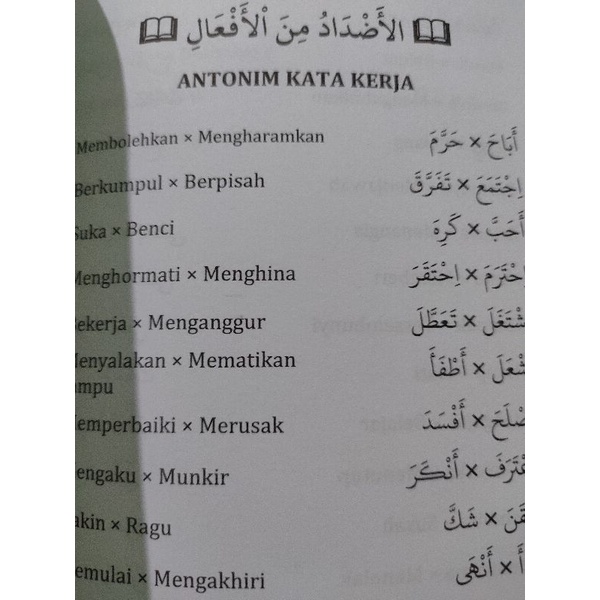 الأَضْدَادُ مِنَ الْأَفْعَالِ
ANTONIM KATA KERJA
Membolehkan × Mengharamkan أَبَاحَ × حَرَّمَ
Berkumpul × Berpisah اِجْتَمَعَ × تَفَرَّقَ
Suka × Benci أَحَبَّ × كَرِهَ
Menghormati × Menghina اِحْتَرَمَ × اِحْتَقَرَ
Bekerja × Menganggur شْتَغَلَ × تَعَطَّلَ
Menyalakan × Mematikan شْعَلَ × أَطْفَأَ
ampu
emperbaiki × Merusak صْلَحَ × أَفْسَدَ
engaku × Munkir عْتَرَفَ × أَنْكَرَ
akin × Ragu قَنَ × شَكَّ
emulai × Mengakhiri أَ × أَنْهَى